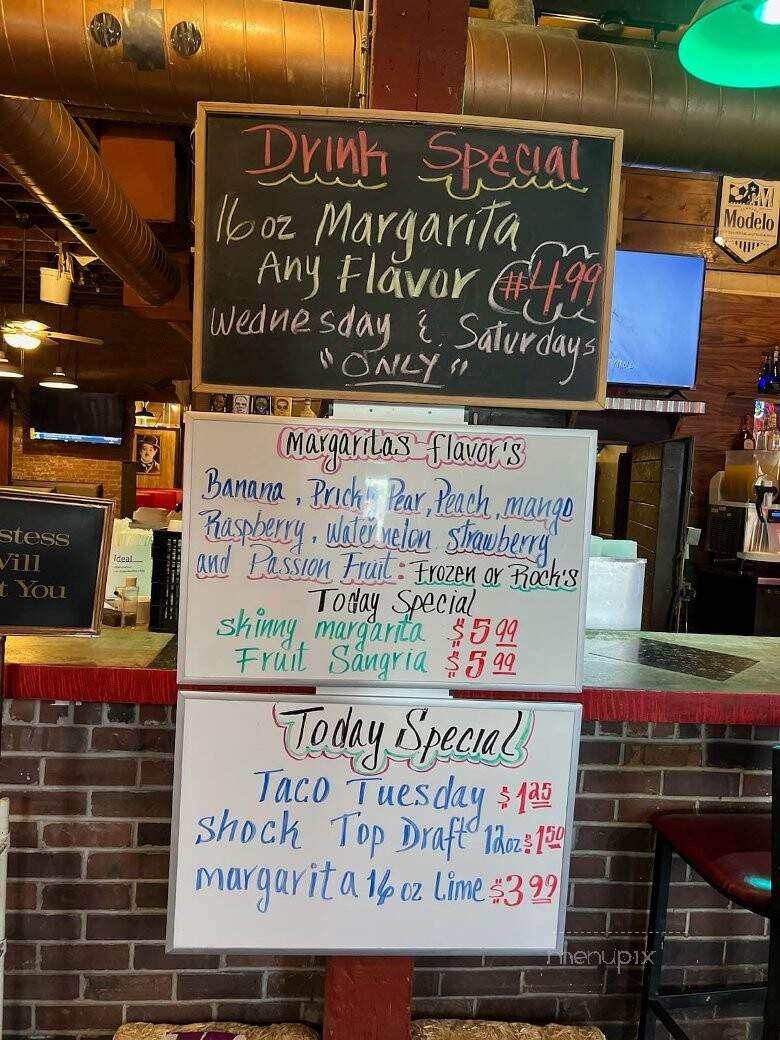 Drink Special
16 oz Margarita
Any Flavor $4.99
Wednesday & Saturdays
"ONLY"
Modelo
Margaritas flavor's
Banana, Prickly Pear, Peach, mango
Raspberry, watermelon strawberry
and Passion Fruit: Frozen or Rock's
Today Special
skinny margarita $5 99
Fruit Sangria $5 99
stess
Vill
t You
Today Special
Taco Tuesday $1 25
Shock Top Draft 12oz $1 50
margarita 16 oz Lime $3 99
menupix